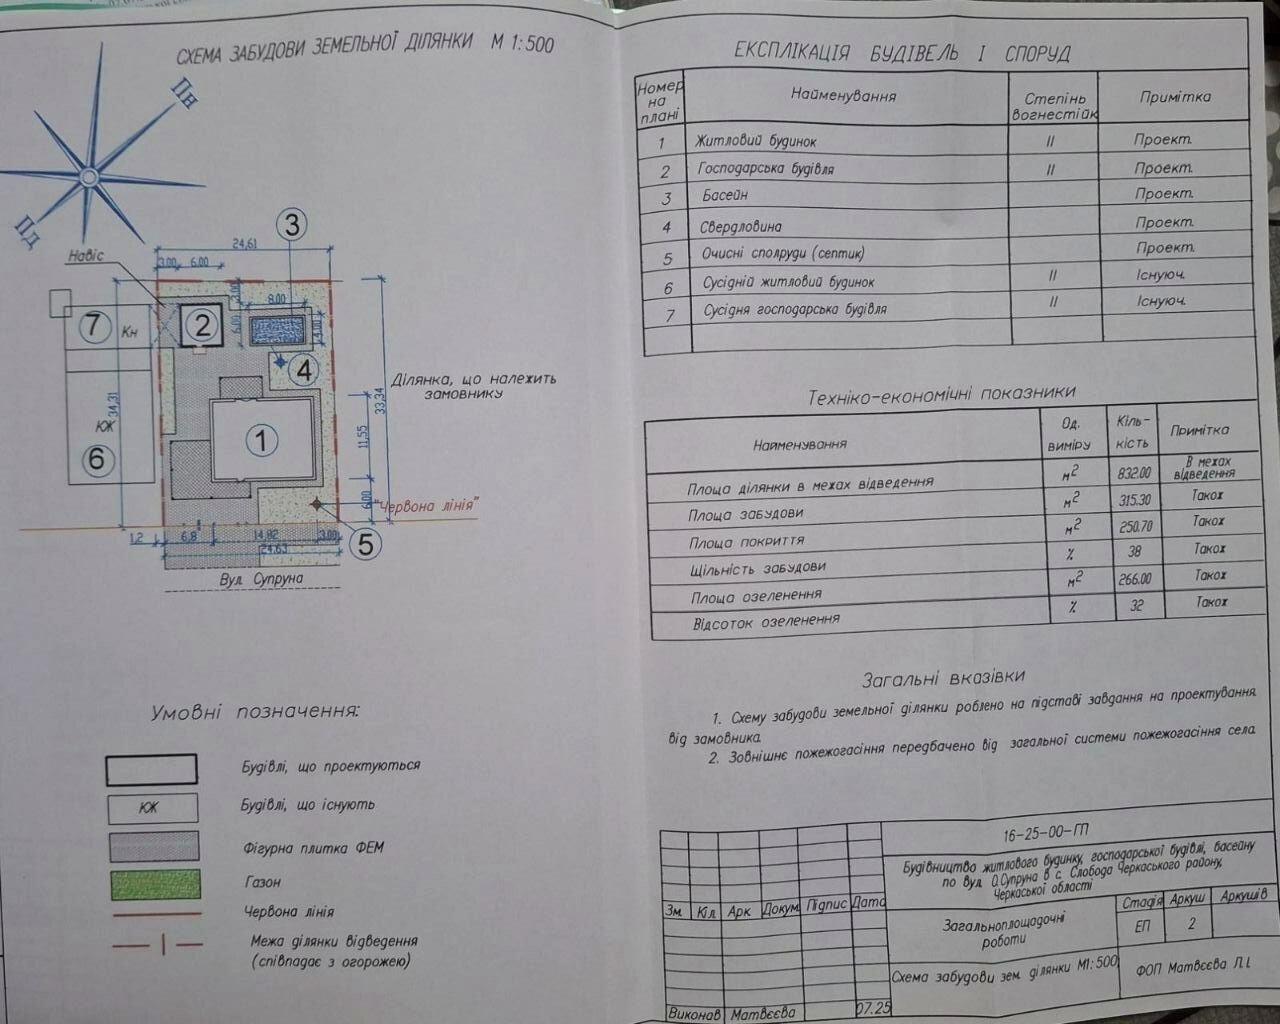 СХЕМА ЗАБУДОВИ ЗЕМЕЛЬНОЇ ДІЛЯНКИ М 1:500
Пн
Пд
Навіс
24,61
3.00 6.00
3.00
8.00
6.00
4.00
3
7
Кн
2
4
34,31
КЖ
6
1
11,55
33,34
6.00
Ділянка, що належить
замовнику
"Червона лінія"
1,2 6,8 14,82 3.00
24,63
5
Вул Супруна
Умовні позначення:
Будівлі, що проектуються
КЖ Будівлі, що існують
Фігурна плитка ФЕМ
Газон
Червона лінія
Межа ділянки відведення
(співпадає з огорожею)
ЕКСПЛІКАЦІЯ БУДІВЕЛЬ І СПОРУД
Номер на плані Найменування Степінь вогнестійк Примітка
1 Житловий будинок II Проект.
2 Господарська будівля II Проект.
3 Басейн Проект.
4 Свердловина Проект.
5 Очисні сполруди (септик) Проект.
6 Сусідній житловий будинок II Існуюч.
7 Сусідня господарська будівля II Існуюч.
Техніко-економічні показники
Найменування Од. виміру Кіль-кість Примітка
Площа ділянки в межах відведення м2 832.00 В межах відведення
Площа забудови м2 315.30 Також
Площа покриття м2 250.70 Також
Щільність забудови % 38 Також
Площа озеленення м2 266.00 Також
Відсоток озеленення % 32 Також
Загальні вказівки
1. Схему забудови земельної ділянки роблено на підставі завдання на проектування
від замовника.
2. Зовнішнє пожежогасіння передбачено від загальної системи пожежогасіння села.
16-25-00-ГП
Будівництво житлового будинку, господарської будівлі, басейну
по вул. О.Супруна в с. Слобода Черкаського району,
Черкаської області
Зм. Кіл. Арк Докум. Підпис Дата
Загальноплощадочні
роботи
Стадія Аркуш Аркушів
ЕП 2
Схема забудови зем. ділянки М1:500
ФОП Матвєєва Л.І.
Виконав Матвєєва 07.25